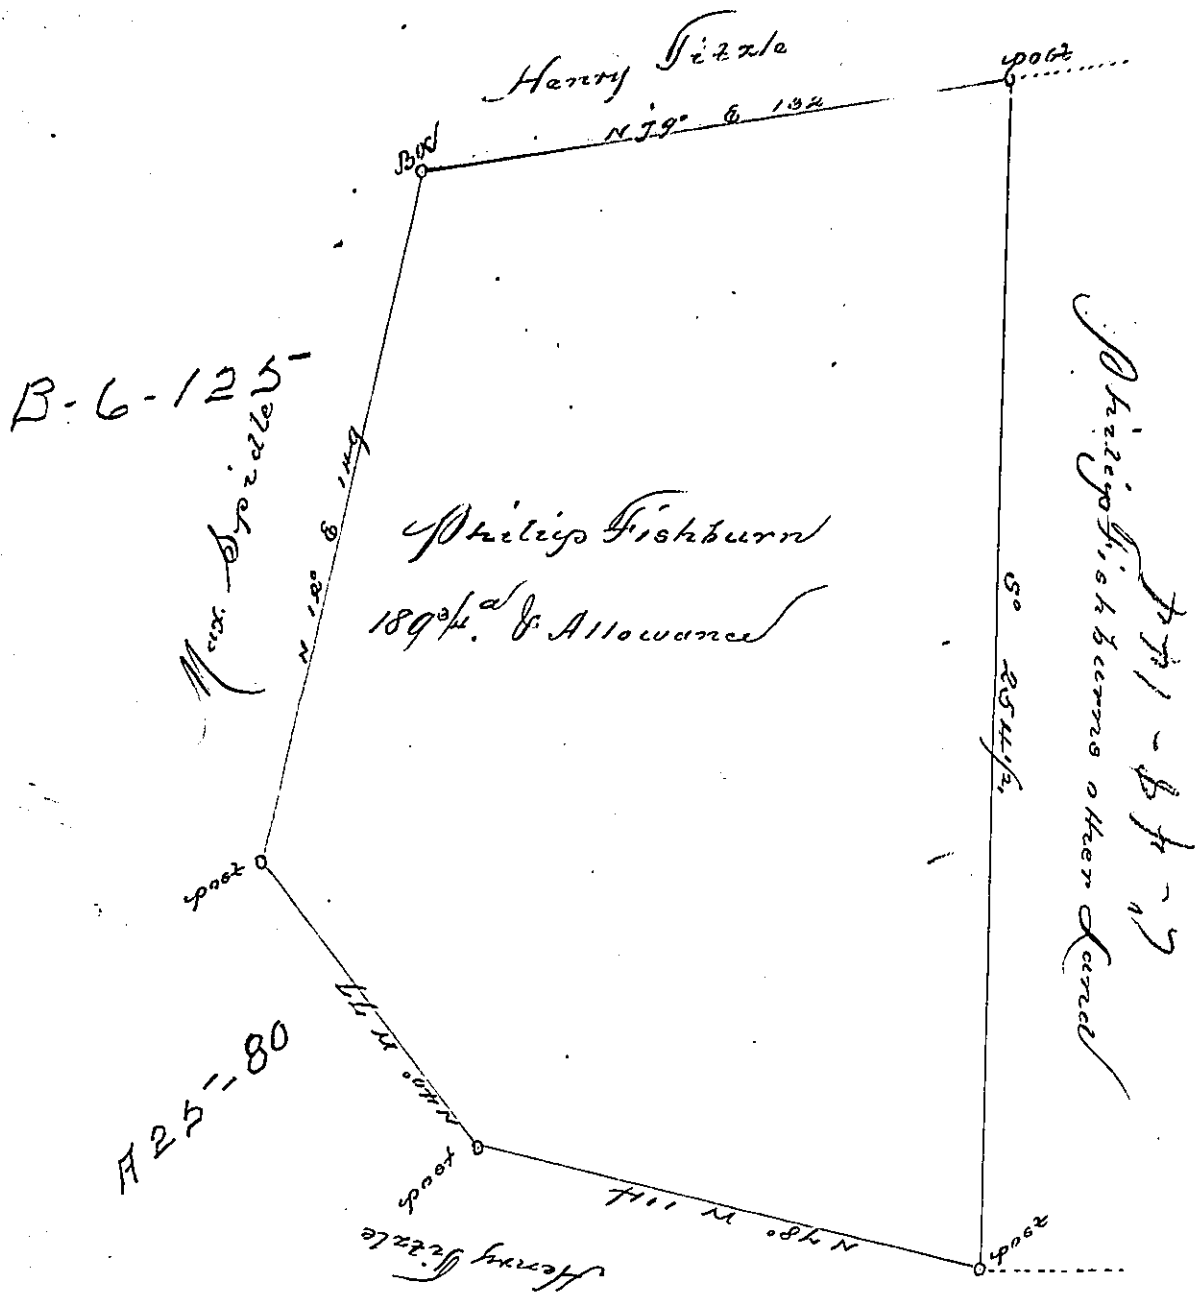 Henry Tizzle
post
N 79° E 132
BO
B-6-125
Max. Spidle
N 12° E 149
Philip Fishburn
189 3/4 a & Allowance
S° 254 1/2
Philip Fishburns other Land
post
N 40° W 77
A 25-80
post
Henry Tizzle
N 78° W 114
post